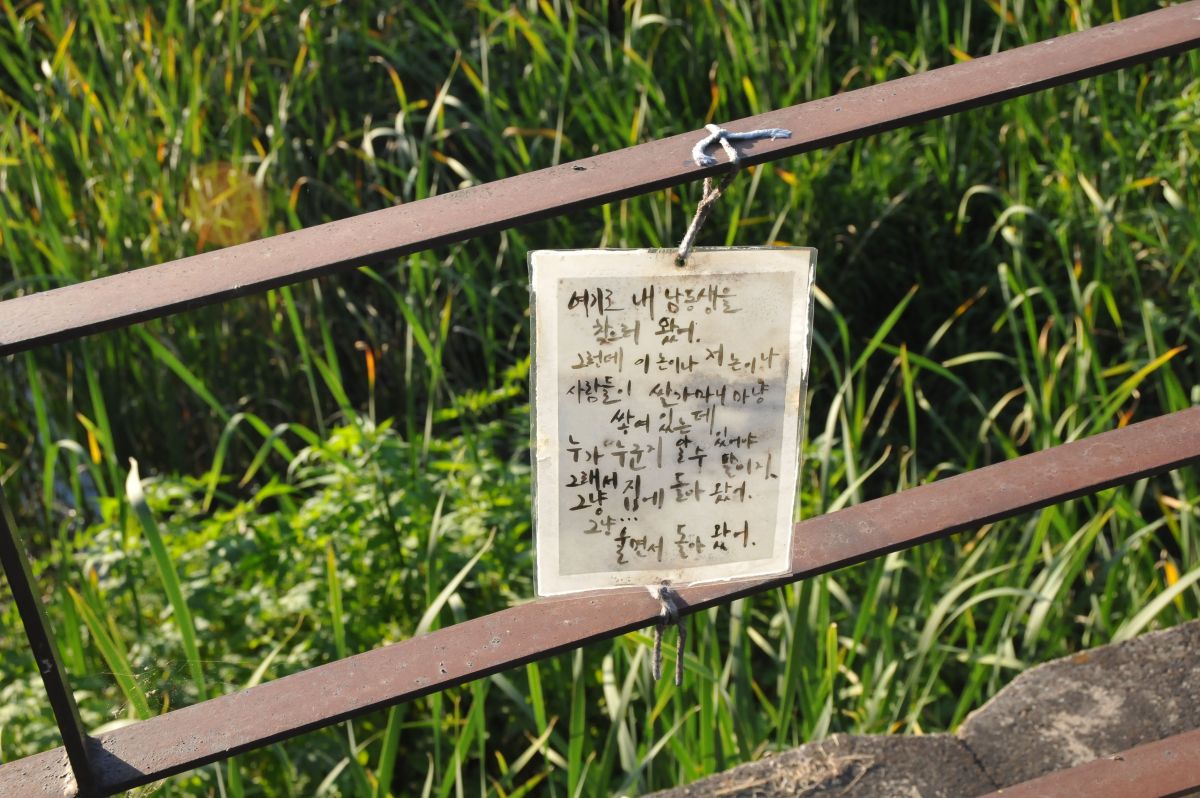 여기로 내 남동생을
찾으러 왔어.
그런데 이 논이나 저 논이나
사람들이 쌀가마니 마냥
쌓여 있는데
누가 누군지 알 수 있어야
말이지.
그래서
그냥 집에 돌아 왔어.
그냥...
울면서 돌아 왔어.